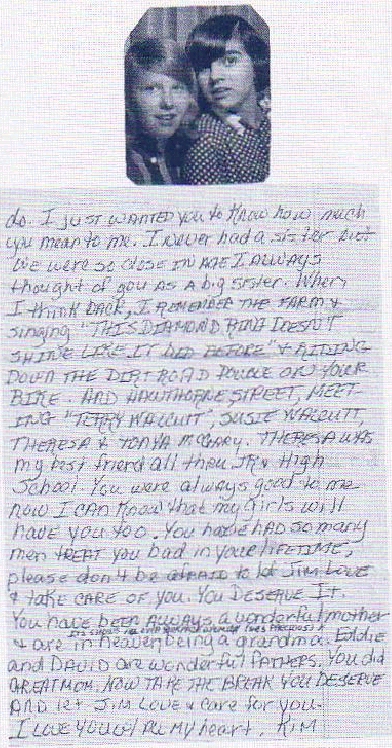 do. I just wanted you to know how much
you mean to me. I never had a sister but
we were so close in age I always
thought of you as a big sister. When
I think back, I remember the farm &
singing "THIS DIAMOND RING DOESN'T
SHINE LIKE IT DID BEFORE" & RIDING
DOWN THE DIRT ROAD DOUBLE ON YOUR
BIKE. AND HAWTHORNE STREET, MEET-
ING "TERRY WALCUTT", SUSIE WALCUTT,
THERESA & TONYA McGARY. THERESA WAS
my best friend all thru JR & High
School. You were always good to me
now I can know that my girls will
have you too. You have had so many
men treat you bad in your lifetime,
please don't be afraid to let Jim Love
& take care of you. You deserve it.
You have been always a wonderful mother
& are in heaven being a grandma. Eddie
and David are wonderful Fathers. You did
GREAT MOM. NOW TAKE THE BREAK YOU DESERVE
AND let Jim Love & care for you.
I love you w/ all my heart, Kim